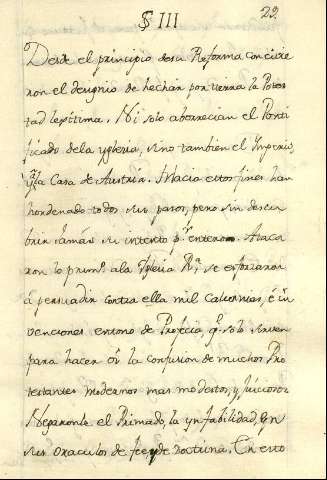 § III
23.
Desde el principio de su Reforma concivie
ron el designio de hechar por tierra la Potes
tad legitima. Ni solo aborrecian el Ponti
ficado de la yglesia, sino tambien el Imperio,
y la Casa de Austria. Hacia estos fines han
hordenado todos sus pasos, pero sin descu
brir jamás su intento pr entero. Ataca
ron lo primo a la Iglesia Ra, se esforzaron
á persuadir contra ella mil calumnias, é in
venciones en tono de Profecia q. solo sirven
para hacer oy la confusion de muchos Pro
testantes modernos mas modestos, y juiciosos
Negaronle el Primado, la ynfabilidad, en
sus oraculos de fee, y de doctrina. En esto